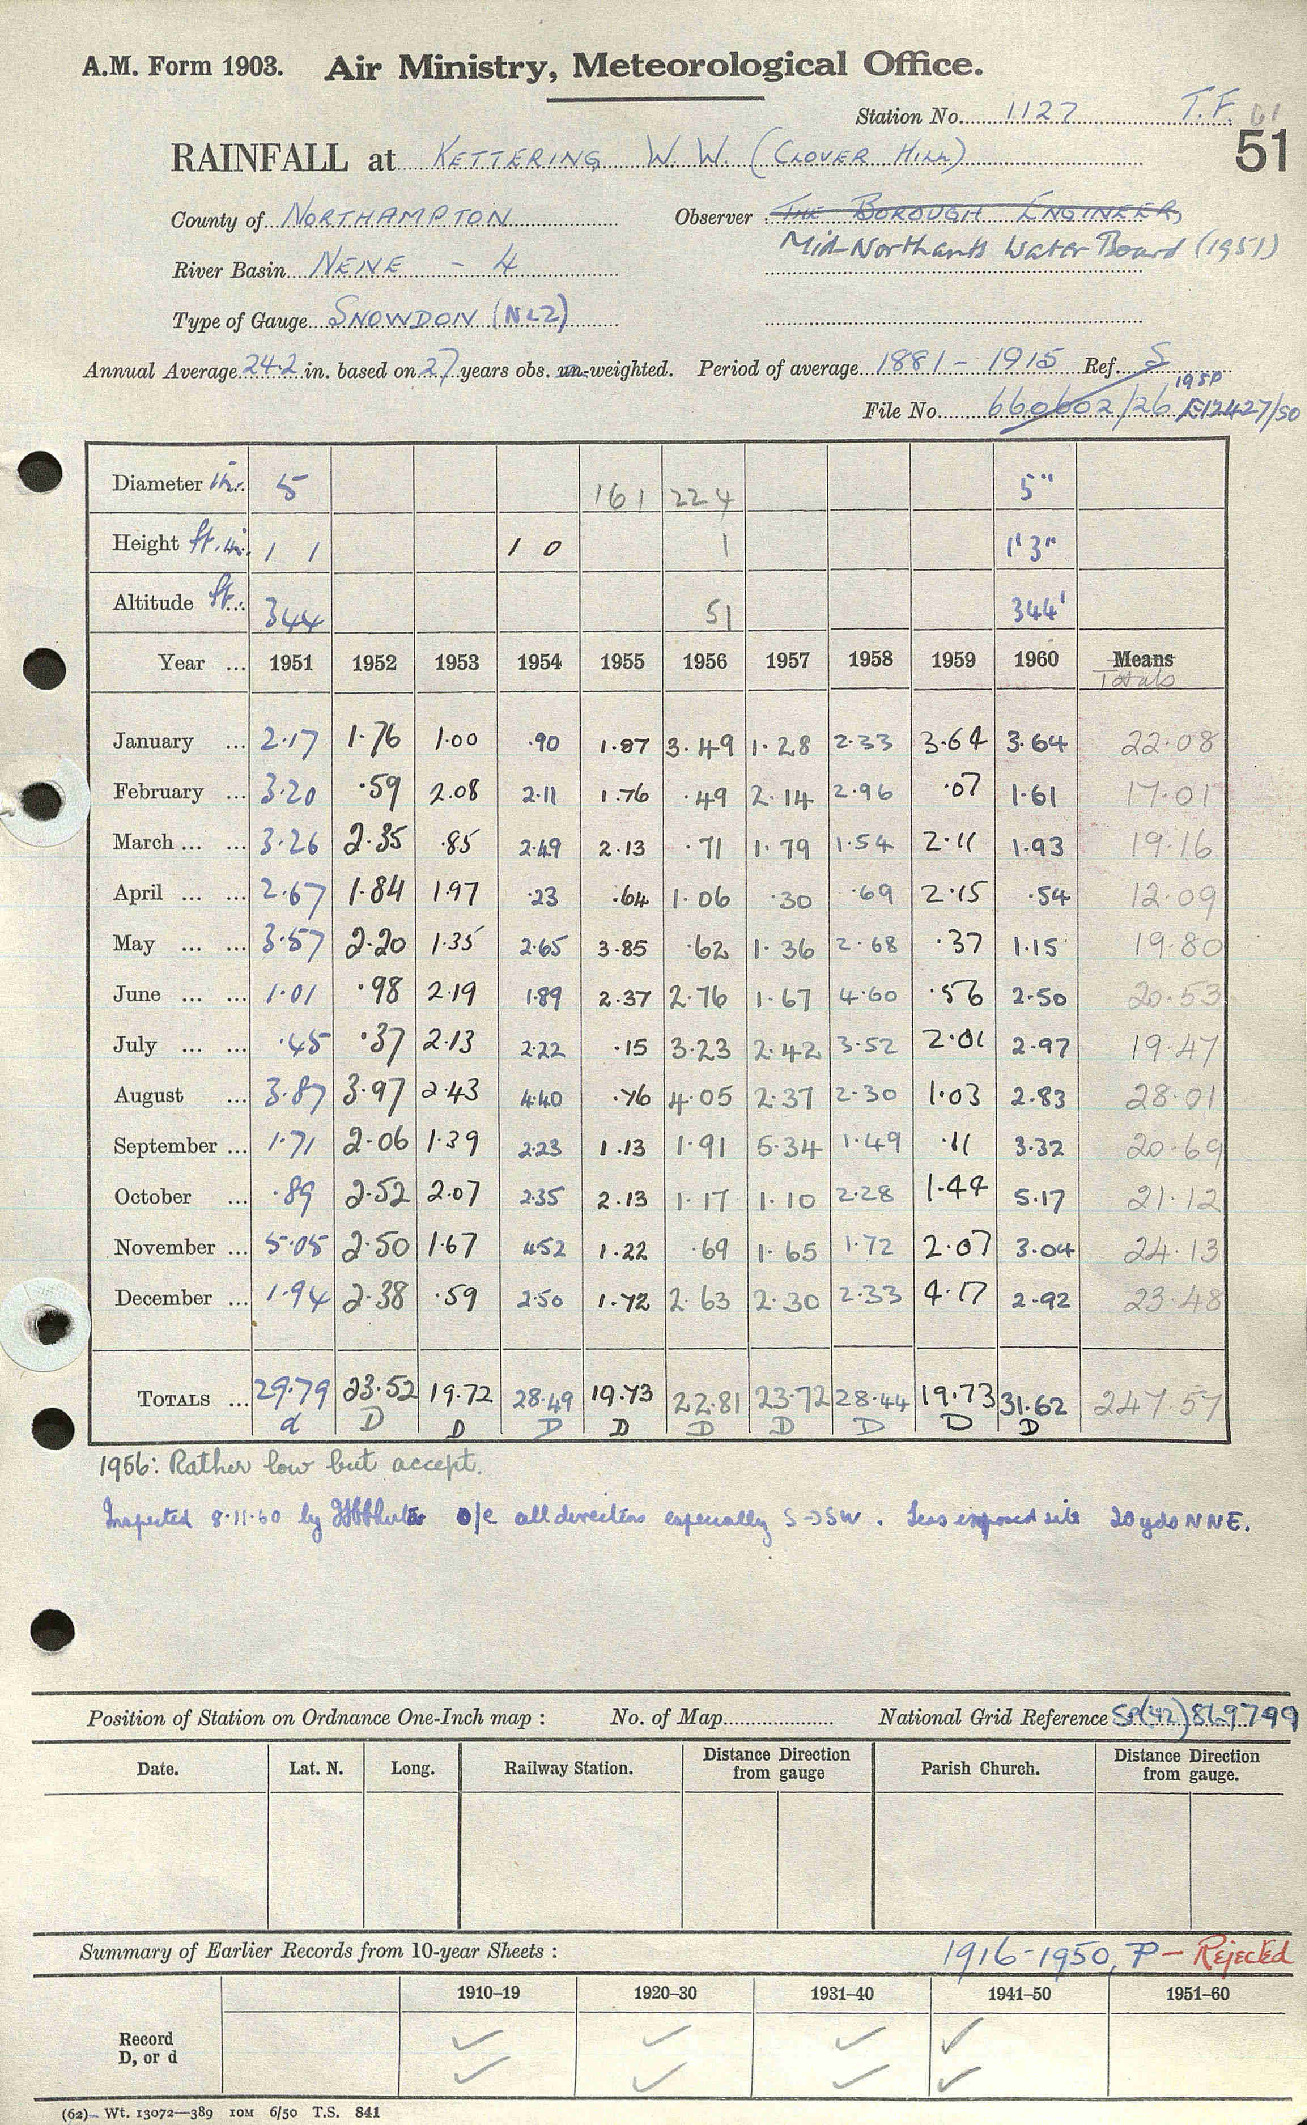 A.M. Form 1903. Air Ministry, Meteorological Office.
Station No. 1127 T.F. 61
51
RAINFALL at KETTERING W. W. (CLOVER HILL)
County of NORTHAMPTON Observer THE BOROUGH ENGINEER
Mid-Northants Water Board (1951)
River Basin NENE - 4
Type of Gauge SNOWDON (NLZ)
Annual Average 24.2 in. based on 27 years obs. un-weighted. Period of average 1881 - 1915 Ref. S
1950
File No. 660602/26 E12427/50
Diameter in. 5 161 224 5"
Height ft. in. 1 1 1 0 1 1'3"
Altitude ft. 344 51 344'
Year ... 1951 1952 1953 1954 1955 1956 1957 1958 1959 1960 Means
Totals
January ... 2.17 1.76 1.00 .90 1.87 3.49 1.28 2.33 3.64 3.64 22.08
February ... 3.20 .59 2.08 2.11 1.76 .49 2.14 2.96 .07 1.61 17.01
March ... ... 3.26 2.35 .85 2.49 2.13 .71 1.79 1.54 2.11 1.93 19.16
April ... ... 2.67 1.84 1.97 .23 .64 1.06 .30 .69 2.15 .54 12.09
May ... ... 3.57 2.20 1.35 2.65 3.85 .62 1.36 2.68 .37 1.15 19.80
June ... ... 1.01 .98 2.19 1.89 2.37 2.76 1.67 4.60 .56 2.50 20.53
July ... ... .45 .37 2.13 2.22 .15 3.23 2.42 3.52 2.01 2.97 19.47
August ... 3.87 3.97 2.43 4.40 .76 4.05 2.37 2.30 1.03 2.83 28.01
September ... 1.71 2.06 1.39 2.23 1.13 1.91 5.34 1.49 .11 3.32 20.69
October ... .89 2.52 2.07 2.35 2.13 1.17 1.10 2.28 1.44 5.17 21.12
November ... 5.05 2.50 1.67 4.52 1.22 .69 1.65 1.72 2.07 3.04 24.13
December ... 1.94 2.38 .59 2.50 1.72 2.63 2.30 2.33 4.17 2.92 23.48
TOTALS ... 29.79 23.52 19.72 28.49 19.73 22.81 23.72 28.44 19.73 31.62 247.57
d D D D D D D D D D
1956: Rather low but accept.
Inspected 8.11.60 by o/e all directions especially S-SSW. Less exposed site 20yds NNE.
Position of Station on Ordnance One-Inch map : No. of Map National Grid Reference SP(42) 869799
Date. Lat. N. Long. Railway Station. Distance Direction from gauge Parish Church. Distance Direction from gauge.
Summary of Earlier Records from 10-year Sheets : 1916-1950, P - Rejected
1910–19 1920–30 1931–40 1941–50 1951–60
Record ✓ ✓ ✓ ✓
D, or d ✓ ✓ ✓ ✓
(62)– Wt. 13072—389 10M 6/50 T.S. 841